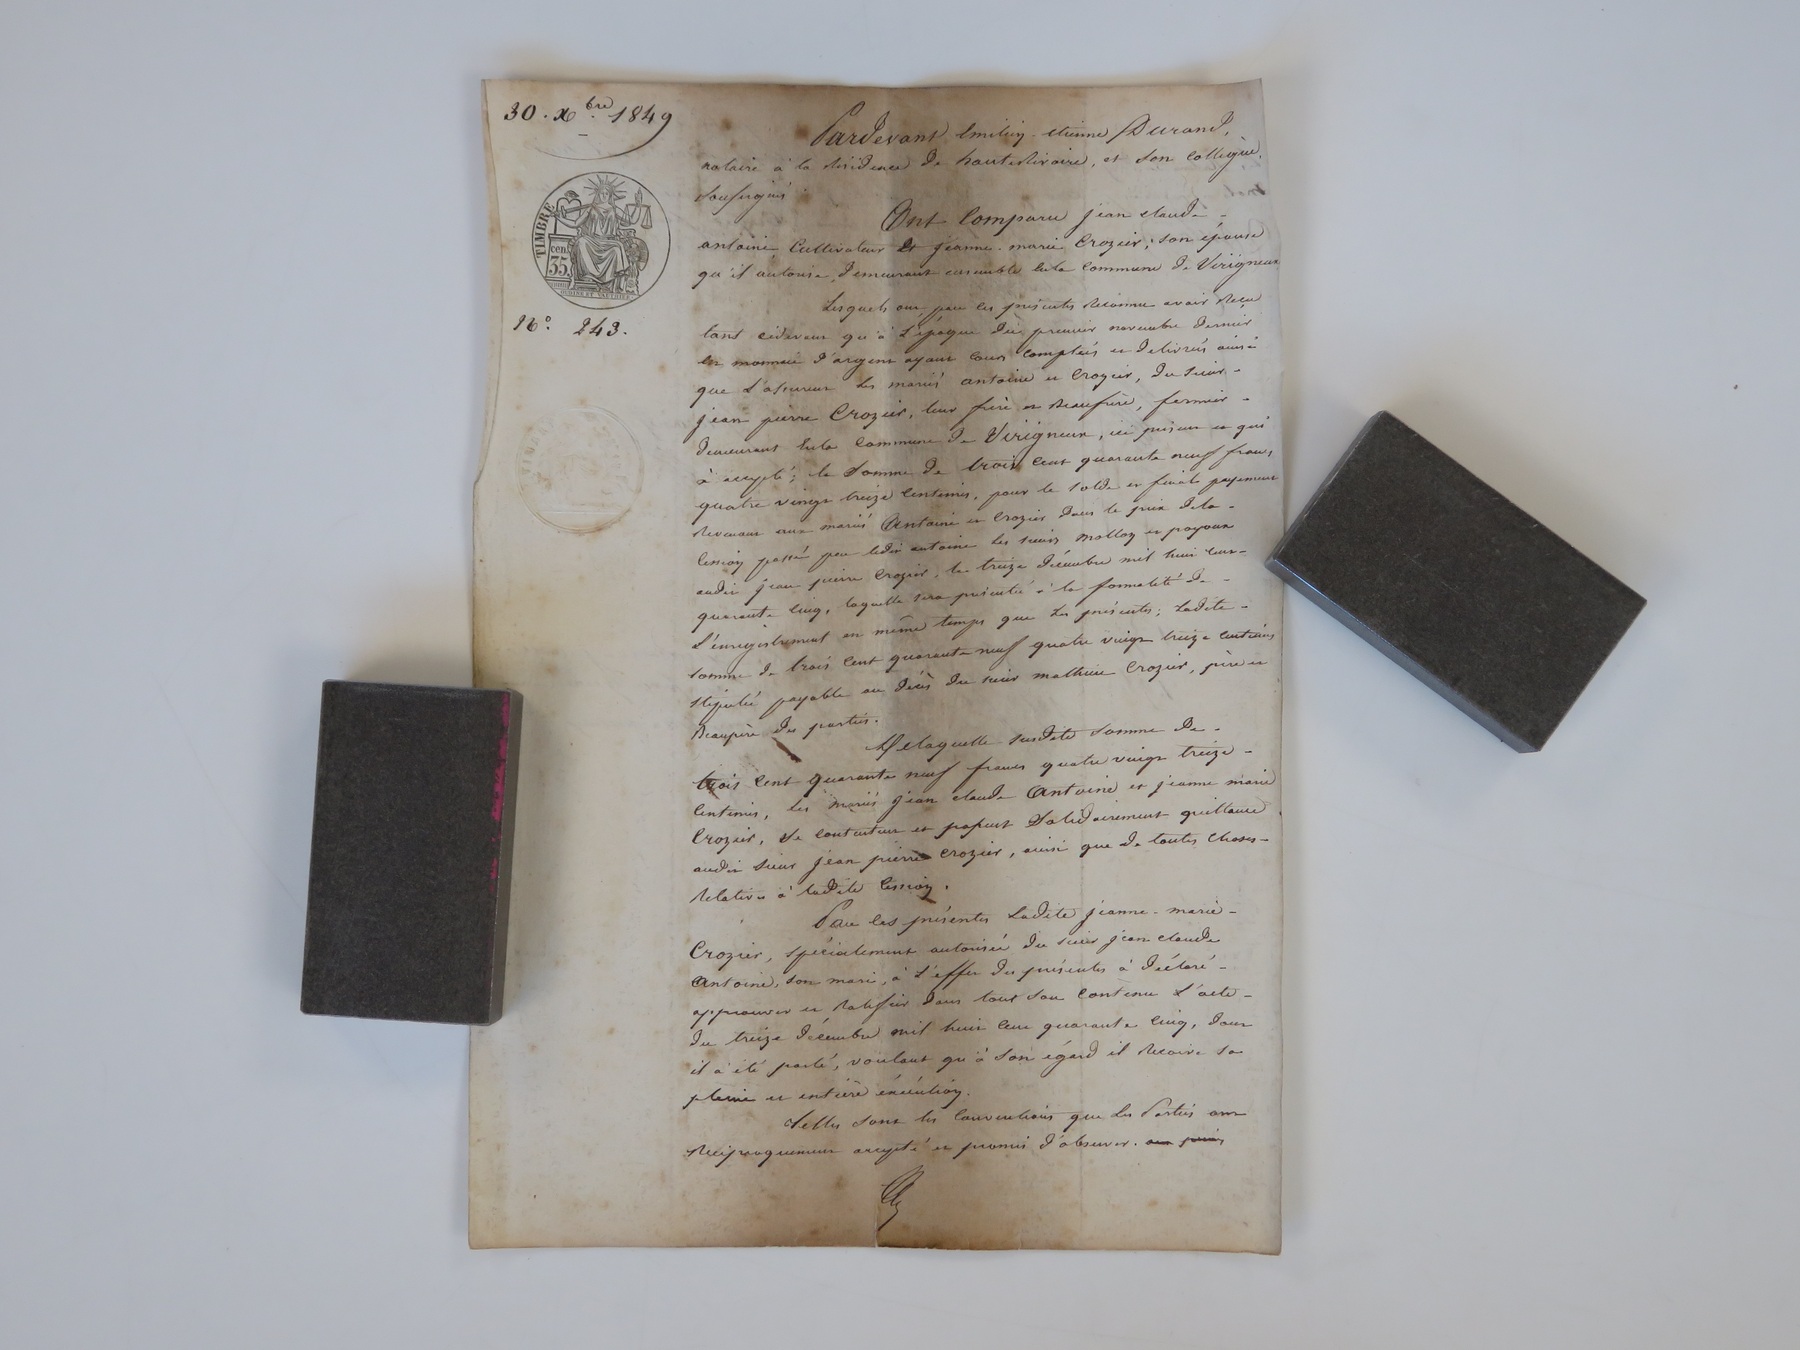 30. Xbre 1849
TIMBRE
cen
35
No. 243.
Pardevant Emilien-etienne Durand,
notaire à la résidence de hauteRivoire, et son collègue
soussignés
Ont Comparu jean claude -
antoine, Cultivateur Et jeanne-marie Crozier, son épouse
qu'il autorise, demeurant ensemble enla commune de Virigneux
Lesquels ont par les présentes Reconnu avoir Reçu
tant cidevant qu'à L'époque du premier novembre dernier
en monnaie d'argent ayant cours comptées et délivrées ainsi
que L'assurent les mariés antoine et Crozier, du sieur -
jean pierre Crozier, leur frère et Beaufrère, fermier -
demeurant enla commune de Virigneux, ici présent et qui
à accepté; la somme de trois cent quarante neuf francs
quatre vingt treize Centimes, pour le solde et final payement
Revenant aux mariés Antoine et Crozier dans le prix dela -
Cession passée par ledit antoine les sieurs et
audit jean pierre Crozier, le treize décembre mil huit cent -
quarante cinq, laquelle sera présentée à la formalité de -
L'enregistrement en même temps que les présentes; Ladite -
somme de trois cent quarante neuf quatre vingt treize centimes
stipulée payable au décès du sieur mathieu Crozier, père et
Beaupère des parties.
De laquelle susdite somme de -
trois cent quarante neuf francs quatre vingt treize -
Centimes, les mariés jean claude Antoine et jeanne marie
Crozier, se contentent et passent Solidairement quittance
audit sieur jean pierre Crozier, ainsi que de toutes choses -
Relatives à ladite Cession.
Par les présentes Ladite jeanne-marie -
Crozier, spécialement autorisée du sieur jean claude
Antoine, son mari, à l'effet des présentes à déclaré -
approuver et Ratifier dans tout son contenu L'acte -
du treize décembre mil huit cent quarante cinq, dont
il à été parlé, voulant qu'à son égard il Recoive sa
pleine et entière éxécution.
Telles sont les Conventions que les Parties ont
Réciproquement accepté et promis d'observer.